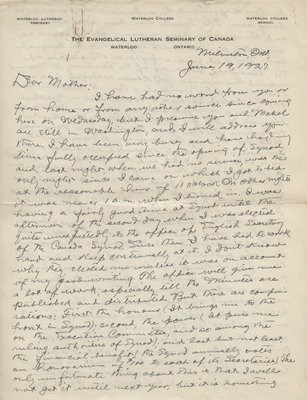 WATERLOO LUTHERAN SEMINARY
WATERLOO COLLEGE
WATERLOO COLLEGE SCHOOL
THE EVANGELICAL LUTHERAN SEMINARY OF CANADA
WATERLOO ONTARIO
Milverton Ont.
June 19, 1927
Dear Mother:
I have had no word from you or
from home or from any other source since coming
here on Wednesday but I presume you and Mabel
are still in Washington, and I will address you
there. I have been very busy and have had my
time fully occupied since the opening of Synod
and last night when we had no service was the
only night since I came on which I got to bed
at the reasonable hour of 11 o'clock. On other nights
it was nearer 1 a.m. when I turned in. I was
having a fairly good time at Synod until the
afternoon of the second day when I was elected
quite unexpectedly to the office of English Secretary
of the Canada Synod. Since then I have had to work
hard and steep continually at it. I don't know
why they elected me unless it was on account
of my good writing. The office will give me
a lot of work especially till the Minutes are
published and distributed. But there are compen-
sations: First the honour (It brings me to the
front in Synod); second, the power (It puts me
on the Executive Committee, and so among the
ruling authorities of Synod), and last but not least
the financial benefit (The Synod annually votes
an honorarium of to each of its Secretaries). The
only unfortunate thing about this is that I will
not get it until next year, but it is something